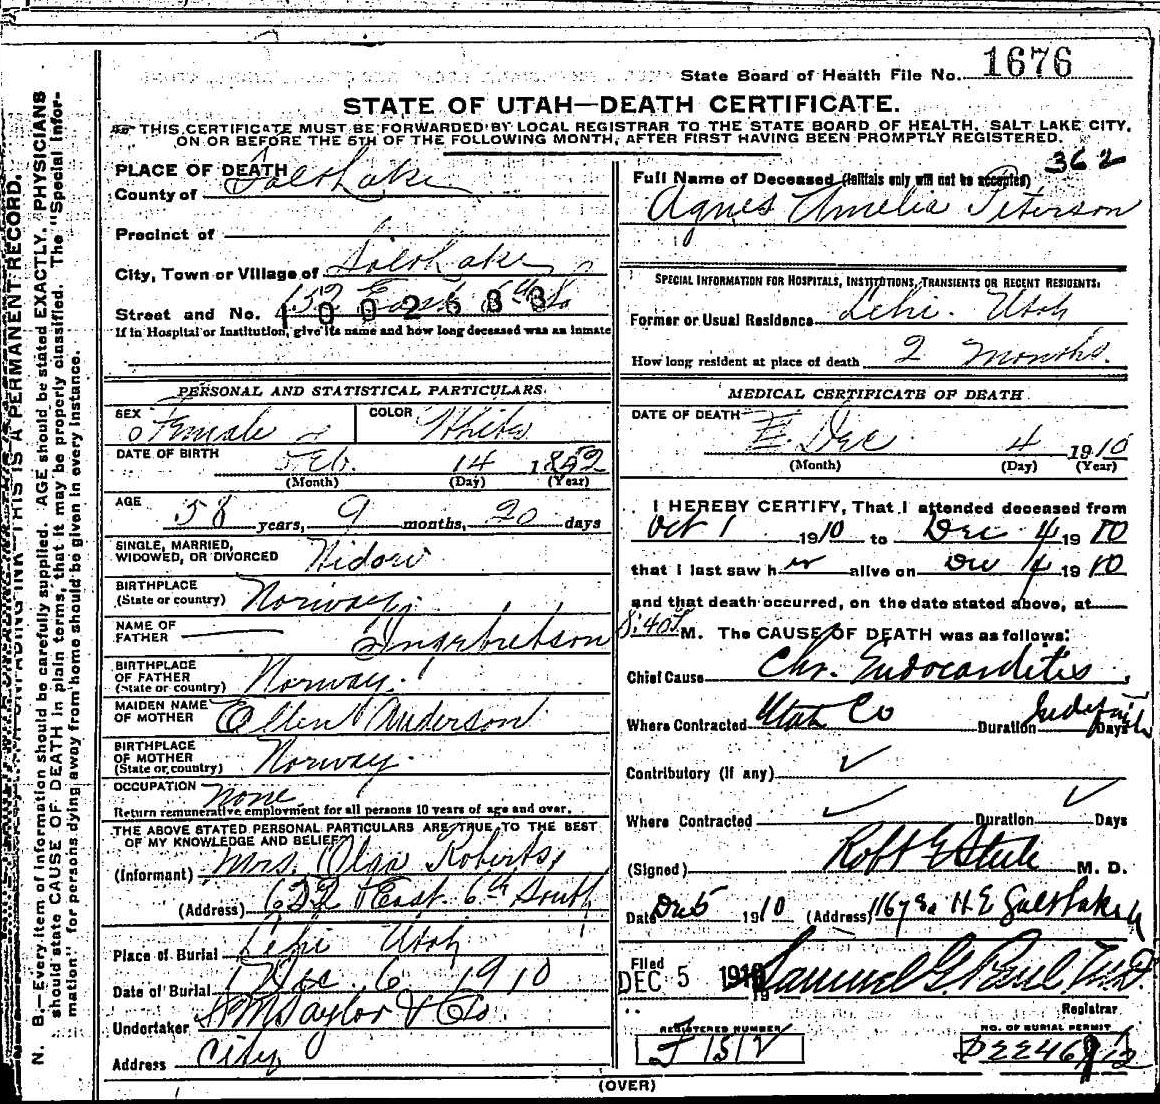 State Board of Health File No. 1676
STATE OF UTAH—DEATH CERTIFICATE.
THIS CERTIFICATE MUST BE FORWARDED BY LOCAL REGISTRAR TO THE STATE BOARD OF HEALTH, SALT LAKE CITY,
ON OR BEFORE THE 5TH OF THE FOLLOWING MONTH, AFTER FIRST HAVING BEEN PROMPTLY REGISTERED.
N. B.—Every item of information should be carefully supplied. AGE should be stated EXACTLY. PHYSICIANS
should state CAUSE OF DEATH in plain terms, that it may be properly classified. The "Special Infor-
mation" for persons dying away from home should be given in every instance.
THIS IS A PERMANENT RECORD.
PLACE OF DEATH
County of Salt Lake
Precinct of
City, Town or Village of Salt Lake
Street and No. 652 East 6th So
1002683
If in Hospital or Institution, give its name and how long deceased was an inmate
PERSONAL AND STATISTICAL PARTICULARS.
SEX Female COLOR White
DATE OF BIRTH Feb. 14 1852
(Month) (Day) (Year)
AGE 58 years, 9 months, 20 days
SINGLE, MARRIED,
WIDOWED, OR DIVORCED Widow
BIRTHPLACE
(State or country) Norway
NAME OF
FATHER Ingebretson
BIRTHPLACE
OF FATHER
(State or country) Norway
MAIDEN NAME
OF MOTHER Ellen Anderson
BIRTHPLACE
OF MOTHER
(State or country) Norway
OCCUPATION None
Return remunerative employment for all persons 10 years of age and over.
THE ABOVE STATED PERSONAL PARTICULARS ARE TRUE TO THE BEST
OF MY KNOWLEDGE AND BELIEF
(Informant) Mrs. Olan Roberts,
(Address) 652 East 6th South
Place of Burial Lehi Utah
Date of Burial Dec 6 1910
Undertaker S M Taylor & Co.
Address City
362
Full Name of Deceased (Initials only will not be accepted)
Agnes Amelia Peterson
SPECIAL INFORMATION FOR HOSPITALS, INSTITUTIONS, TRANSIENTS OR RECENT RESIDENTS.
Former or Usual Residence Lehi. Utah
How long resident at place of death 2 Months.
MEDICAL CERTIFICATE OF DEATH
DATE OF DEATH Dec 4 1910
(Month) (Day) (Year)
I HEREBY CERTIFY, That I attended deceased from
Oct 1 1910 to Dec 4 1910
that I last saw her alive on Dec 4 1910
and that death occurred, on the date stated above, at
8:40 M. The CAUSE OF DEATH was as follows:
Chief Cause Chr. Endocarditis
Where Contracted Utah Co Duration Days
Contributory (If any)
Where Contracted Duration Days
(Signed) M. D.
Date Dec 5 1910 (Address)
Filed
DEC 5 1910 Samuel G. Paul M.D.
Registrar
REGISTERED NUMBER
NO. OF BURIAL PERMIT
(OVER)